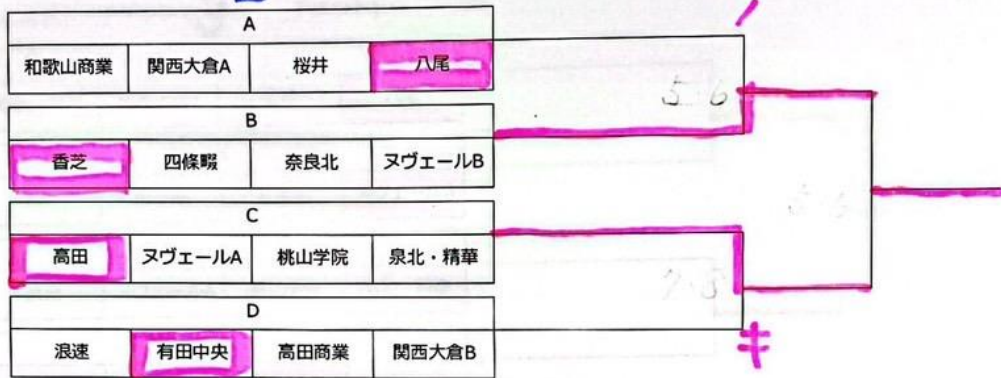 A
和歌山商業 関西大倉A 桜井 八尾
5-6
B
香芝 四條畷 奈良北 ヌヴェールB
C
高田 ヌヴェールA 桃山学院 泉北・精華
D
浪速 有田中央 高田商業 関西大倉B